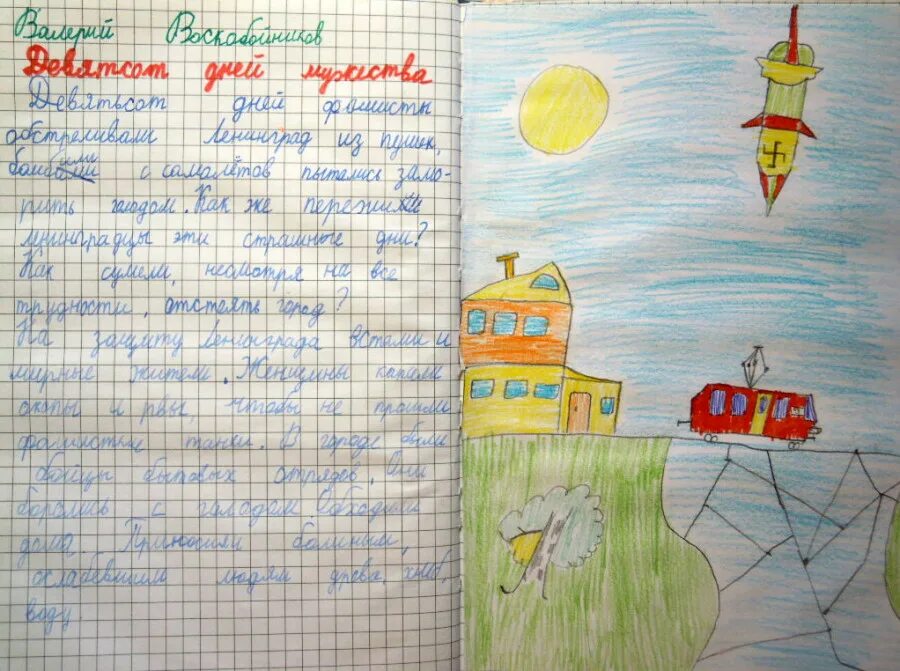 Валерий Воскобойников
Девятсот дней мужества
Девятьсот дней фашисты
обстреливали Ленинград из пушек,
бомбили с самолётов пытались замо-
рить голодом. Как же пережили
ленинградцы эти страшные дни?
Как сумели, несмотря на все
трудности, отстоять город?
На защиту Ленинграда встали и
мирные жители. Женщины копали
окопы и рвы, чтобы не прошли
фашистские танки. В городе были
бойцы бытовых отрядов. Они
боролись с голодом Обходили
дома. Приносили больным,
ослабевшим людям дрова, хлеб,
воду.